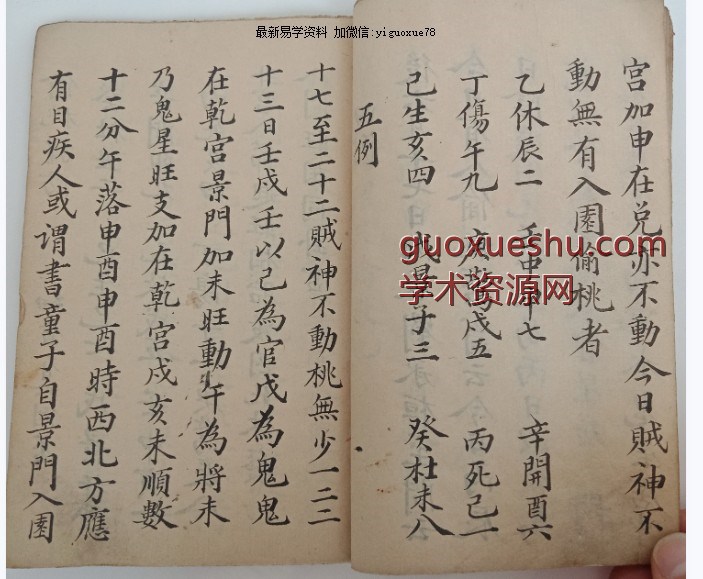 最新易学资料 加微信:yiguoxue78
宫加申在兑亦不動今日賊神不
動無有入園偷桃者
乙休辰二 壬申七 辛開酉六
丁傷午九 庚戌五 丙死己一
己生亥四 景子三 癸杜未八
五例
十七至二十二賊神不動桃無少一二三
十三日壬戌壬以己為官戊為鬼鬼
在乾宫景門加未旺動午為將未
乃鬼星旺支加在乾宫戌亥未順數
十二分午落申酉申酉時西北方應
有目疾人或谓書童子自景門入園
guoxueshu.com
学术资源网